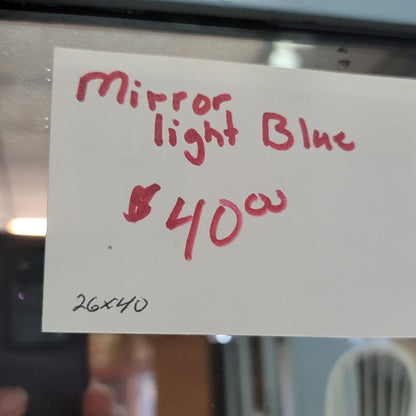 Mirror
light Blue
$40.00
26x40